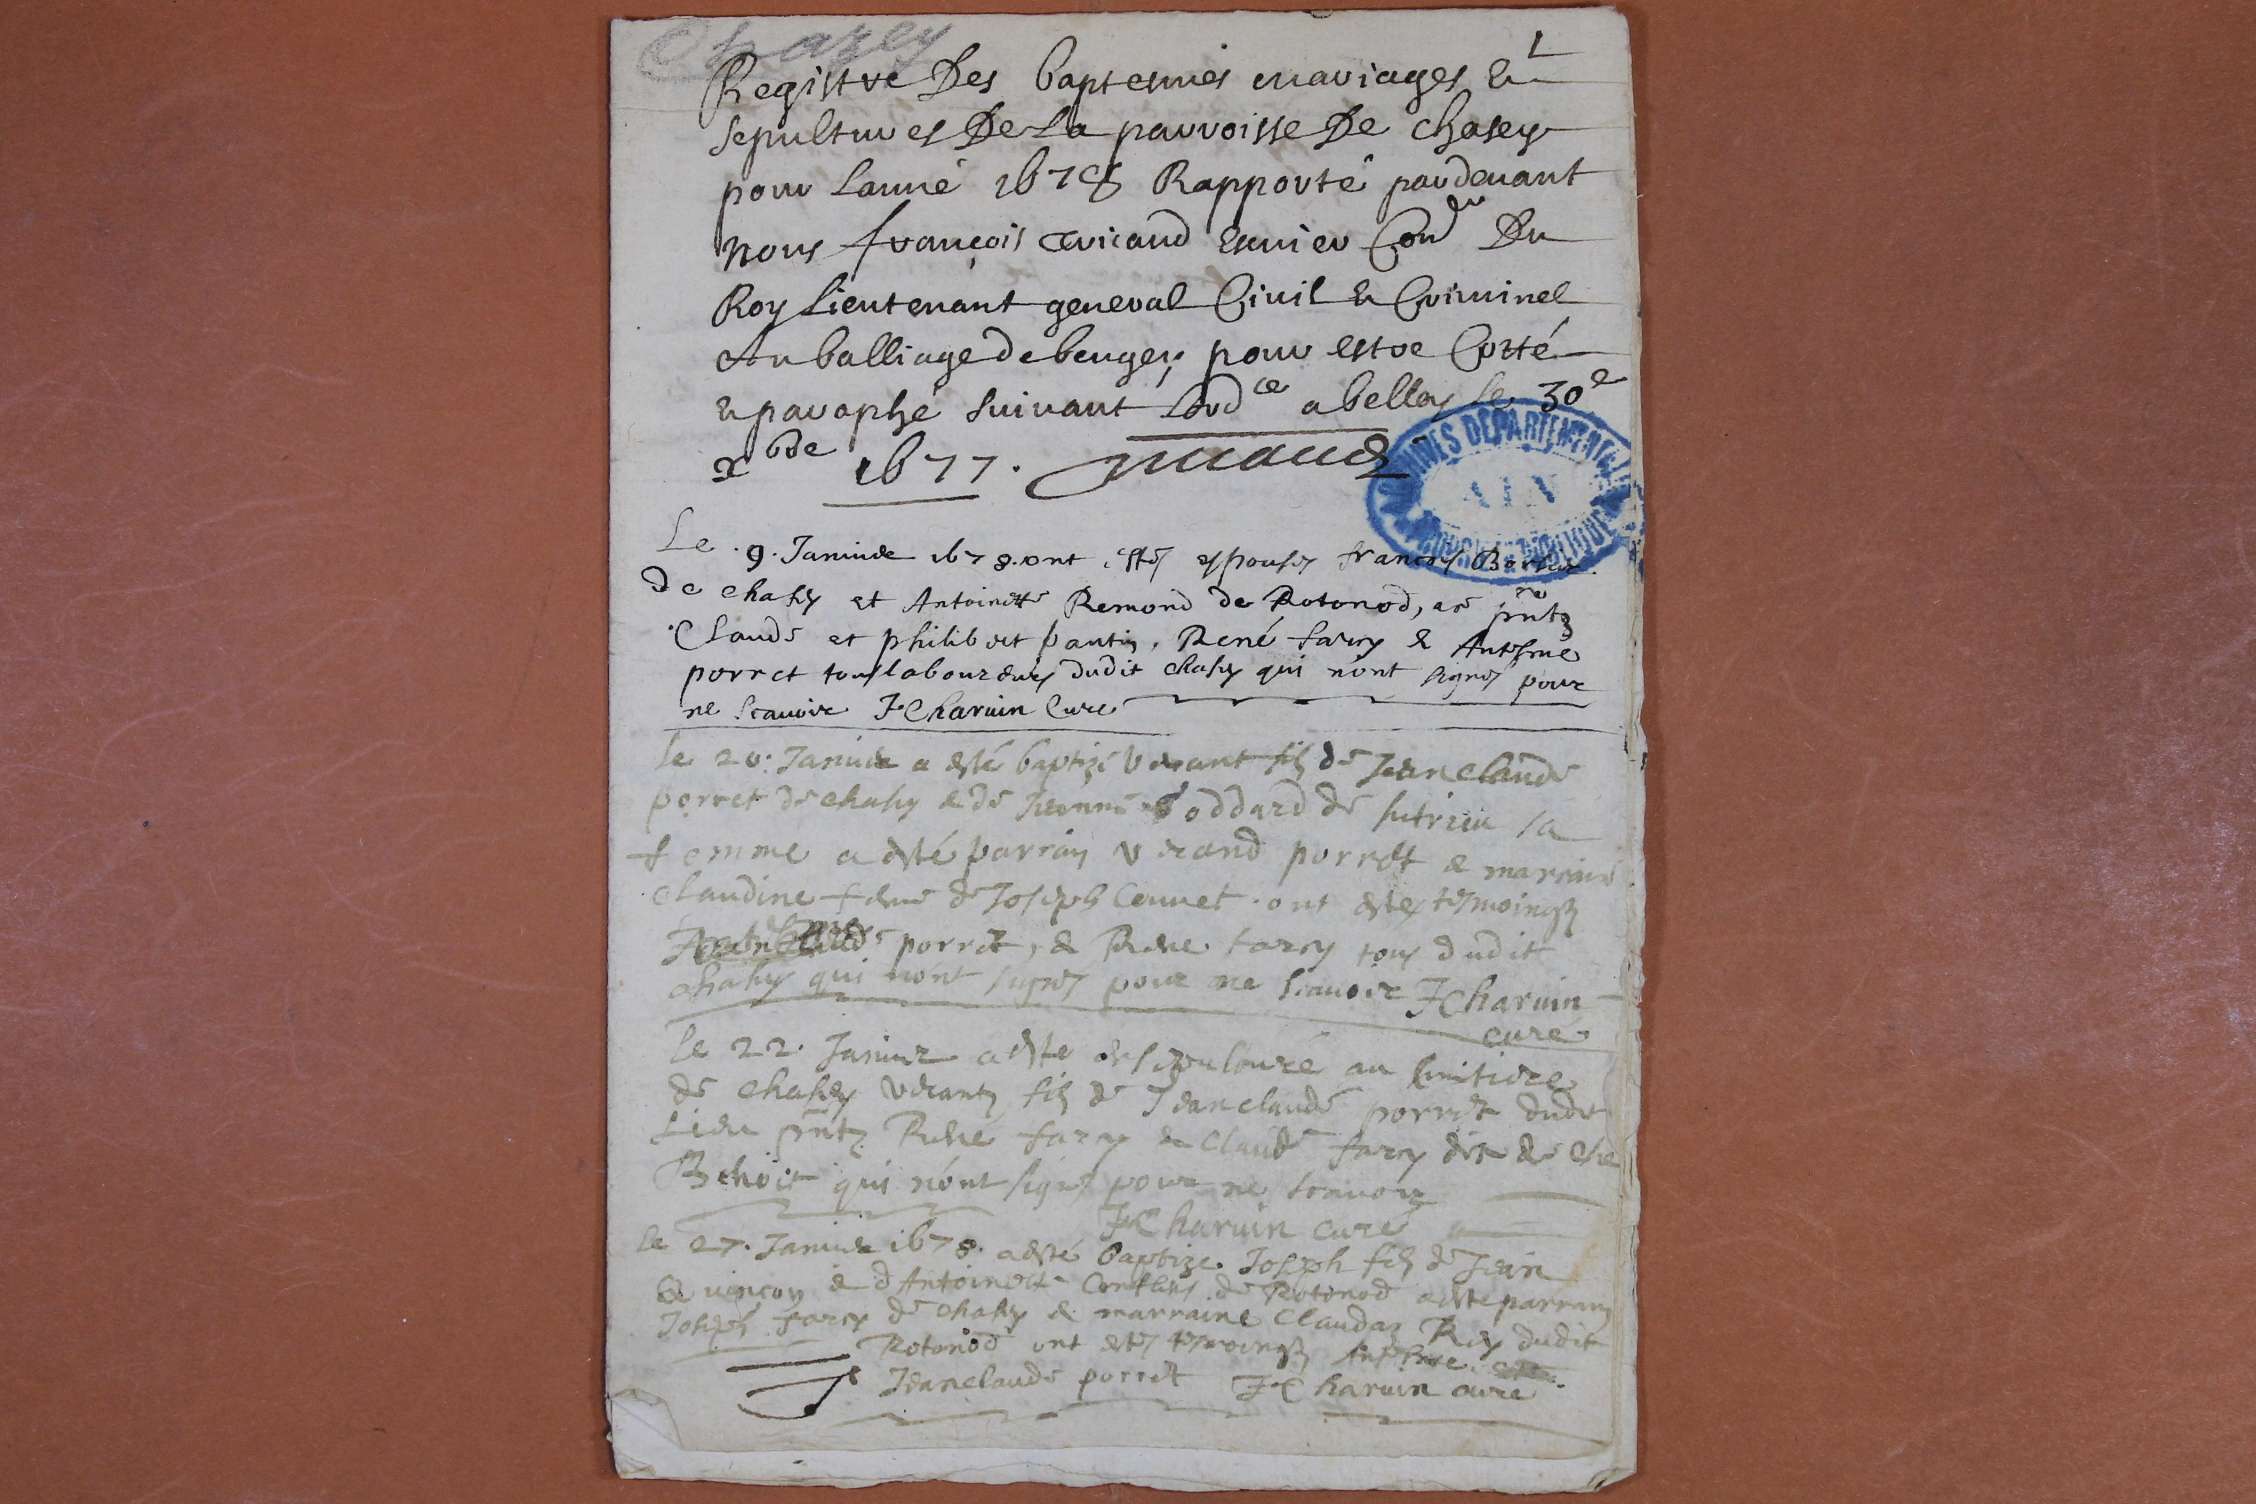 Chazey
1
Registre Des baptesmes mariages &
sepultures De La parroisse De chasey
pour Lanné 1678 Rapporté pardevant
nous françois escuier Con^er Du
Roy Lieutenant general Civil & Criminel
Au balliage de beugey pour estre Cotté
& paraphé suivant Lord^ce a belley le 30^e
x^bre 1677.
ARCHIVES DEPARTEMENTALES
AIN
Le .9. Januier 1678. ont estés espousés françois
de chasey et Antoinette Remond de Rotonod, pnts
Claude et philibert pantin, René farcy & Anthelme
porret tous laboureurs dudit chasey qui n'ont signés pour
ne scauoir FCharuin Curé
le 20. Januier a esté baptizé Verant fils de Jean claude
porret de chasey & de Jeanne Goddard de sutrieu sa
femme a esté parrain Verand porret & marraine
Claudine feme de Joseph Cennet. ont estés tesmoings
Anthelme porret, & René farcy tous dudit
chasey qui n'ont signés pour ne scauoir FCharuin
curé
le 22. Januier a esté ensepulturé au simitiere
de chasey Verant fils de Jean claude porret dudit
Lieu pnts René farcy & Claude farcy dit de
Benoit qui n'ont signé pour ne scauoir
FCharuin curé
le 27. Januier 1678. a esté baptize Joseph fils de Jean
Quinçon & d'Antoinette de Rotonod a esté parrain
Joseph farcy de chasey & marraine Claudaz Rey dudit
Rotonod ont estés tesmoings Anthelme &
Jean claude porret FCharuin curé